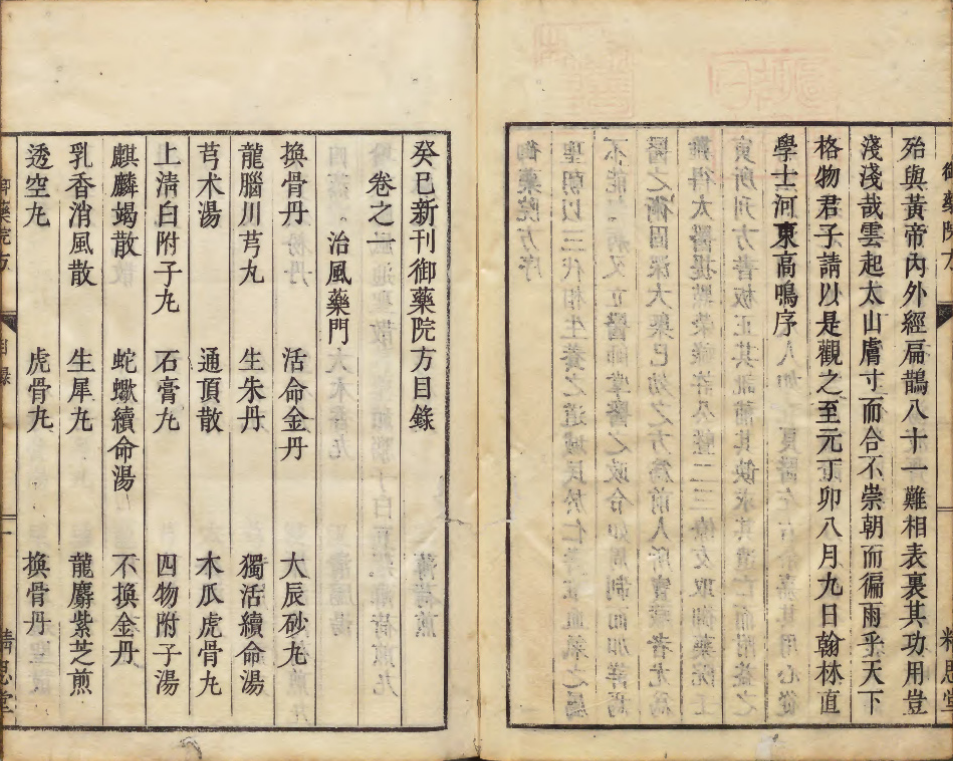 御藥院方
精思堂
殆與黃帝內外經扁鵲八十一難相表裏其功用豈
淺淺哉雲起太山膚寸而合不崇朝而徧雨乎天下
格物君子請以是觀之至元丁卯八月九日翰林直
學士河東高鳴序
癸巳新刊御藥院方目錄
卷之一
治風藥門
換骨丹 活命金丹 大辰砂丸
龍腦川芎丸 生朱丹 獨活續命湯
芎术湯 通頂散 木瓜虎骨丸
上清白附子丸 石膏丸 四物附子湯
麒麟竭散 蛇蠍續命湯 不換金丹
乳香消風散 生犀丸 龍麝紫芝煎
透空丸 虎骨丸 換骨丹
御藥院方 目錄 一 精思堂